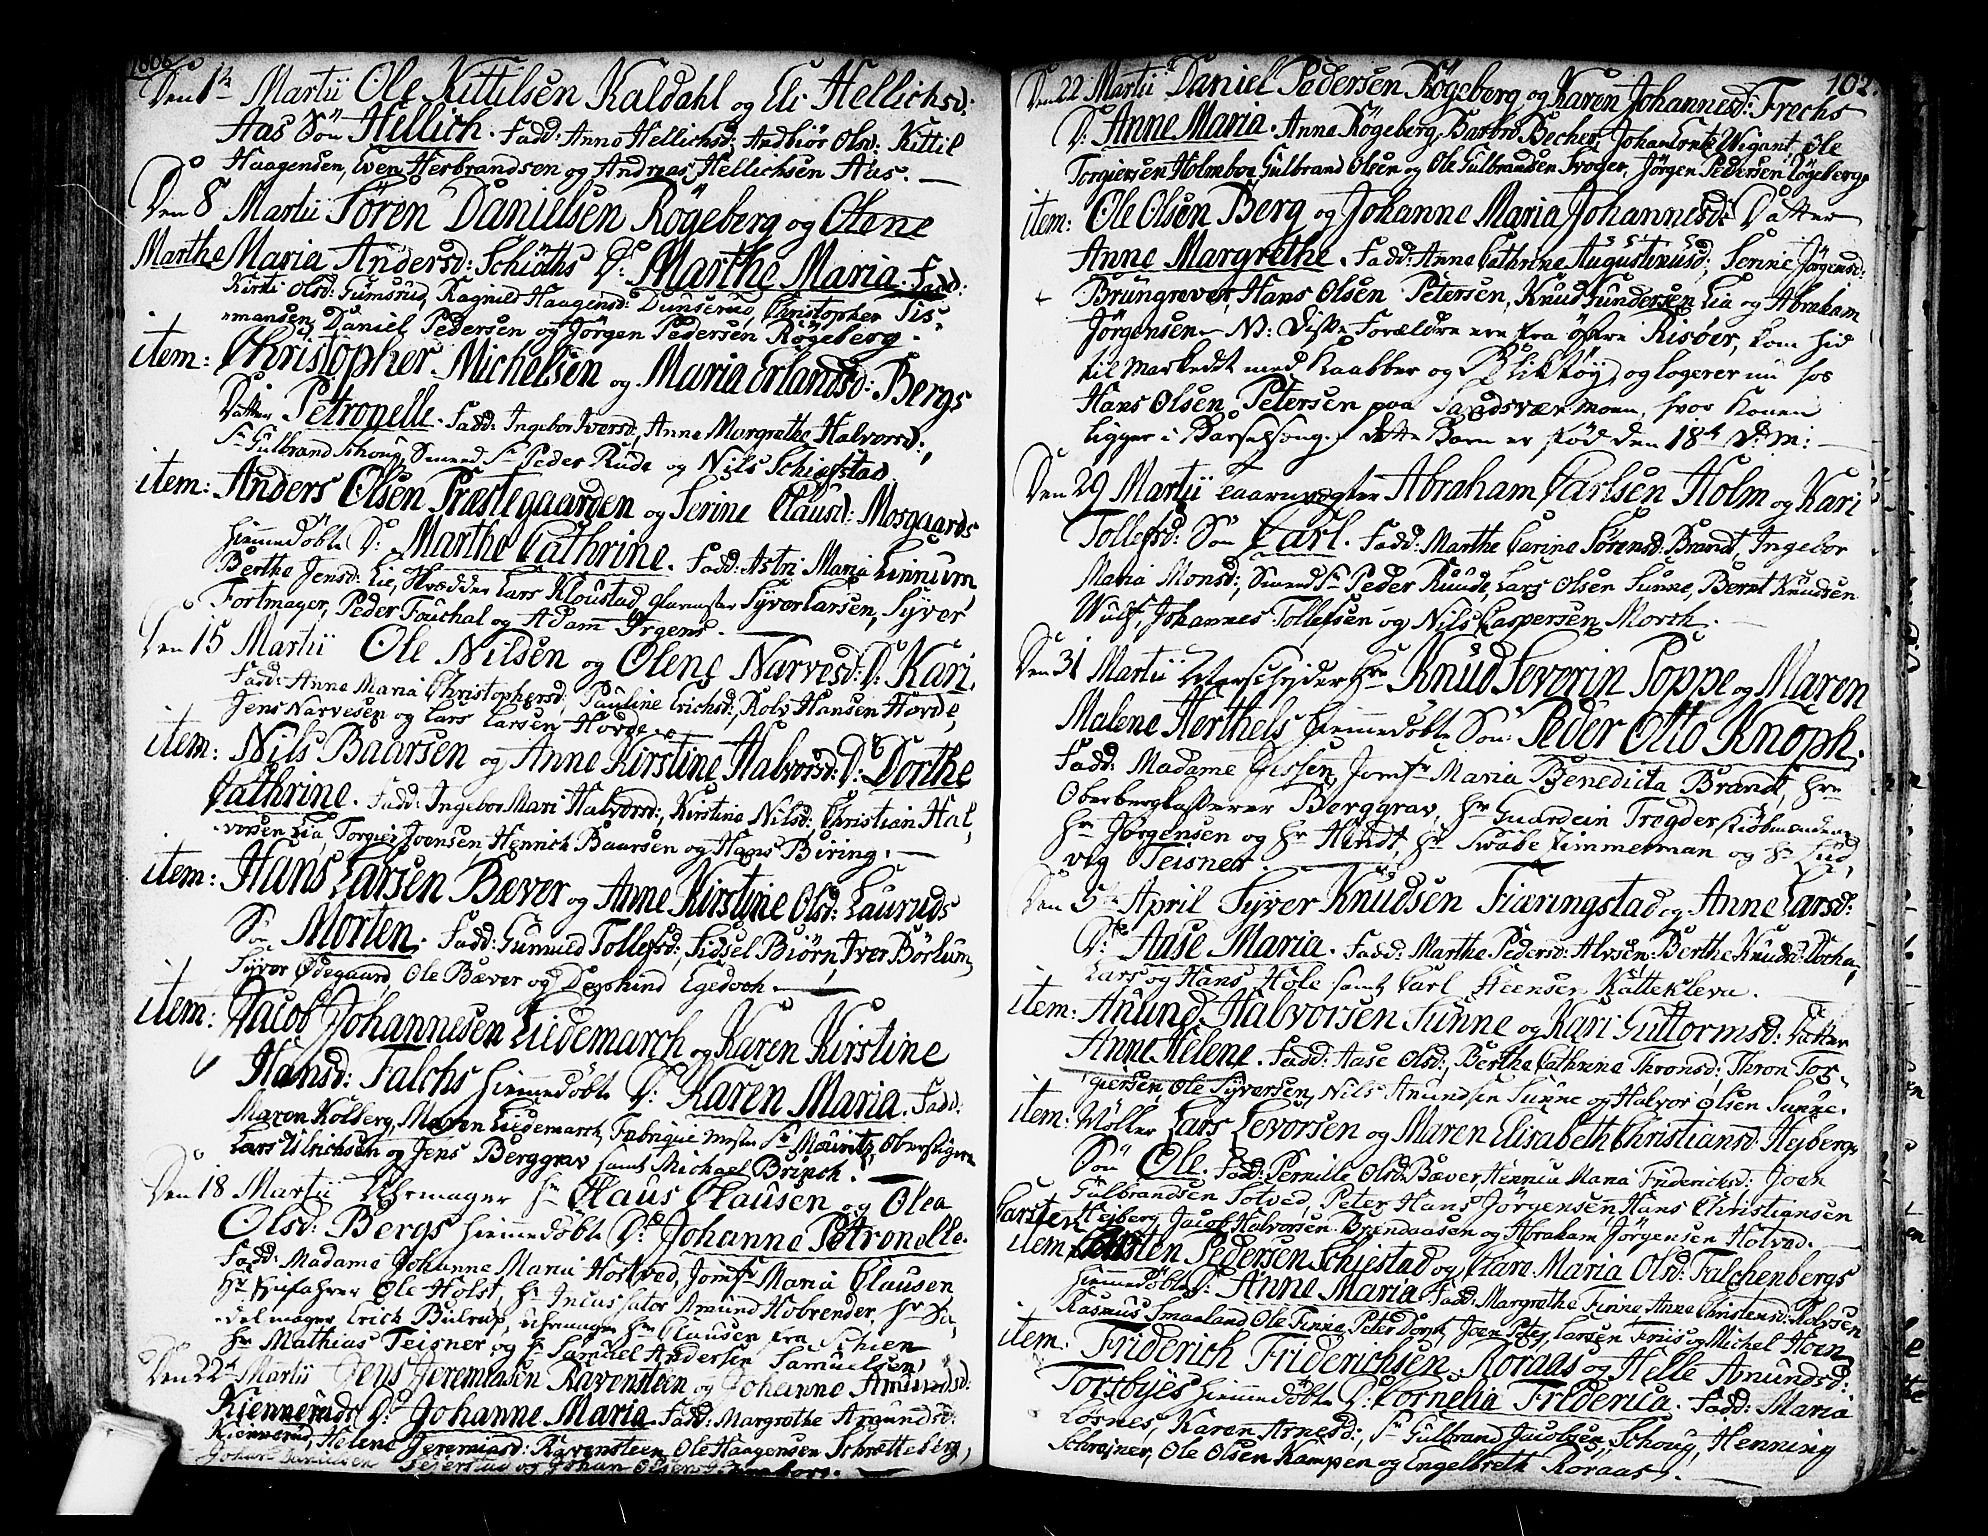 1806
Den 1te Martii Ole Kittilsen Kaldahl og Eli Hellichsd:
Aas Søn Hellich. Fadd: Anne Hellichsd: Andbiör Olsd: Kittil
Haagensen, Even Herbrandsen og Andreas Hellichsen Aas.
Den 8 Martii Sören Danielsen Rögeberg og Olene
Marthe Maria Andersd: Schiöths D: Marthe Maria. Fadd:
Kirsti Olsd: Gumsrud, Ragnild Haagensd: Dunserud, Christopher Sis-
mansen, Daniel Pedersen og Jörgen Pedersen Rögeberg.
item: Christopher Michelsen og Maria Erlandsd: Bergs
Datter Petronelle. Fadd: Ingebor Iversd, Anne Margrethe Halvorsd:,
Sr Gulbrand Schoug, Smeed Sr Peder Rude og Nils Schiefstad
item: Anders Olsen Præstegaarden og Serine Clausd: Mosgaards
hiemmedöbte D: Marthe Cathrine. Fadd: Astri Maria Linnum
Berthe Jensd: Lie, Lars Kloustad, Glarmester Syver Larsen, Syver
Fortmager, Peder Fouchal og Adam Irgens.
Den 15 Martii Ole Nilsen og Olene Narvesd: D: Kari.
Fadd: Anne Maria Christophersd, Pauline Erichsd:, Rolv Hansen Hovde,
Jens Narvesen og Lars Larsen Hovde
item: Nils Baarsen og Anne Kirstine Halvorsd: D: Dorthe
Cathrine. Fadd: Ingebor Mari Halvorsd:, Kirstine Nilsd: Christian Hal,
vorsen Lia, Torgier Joensen, Henrich Baarsen og Hans Biring.
item: Hans Larsen Bæver og Anne Kirstine Olsd: Lauruds
Søn Morten. Fadd: Gunnild Tollefsd:, Sidsel Biörn, Iver Börlum,
Syver Ødegaard, Ole Bæver og Egedoch.
item: Jacob Johannesen Liedemarch og Karen Kirstine
Hansd: Falchs hiemmedöbte D: Karen Maria. Fadd:
Maren Kolberg, Maren Liedemarch, Fabrique mester Sr Mouritz, Oberstiger
Lars Ulrichsen og Jens Berggrav samt Michael Brinch.
Den 18 Martii Uhrmager Hr Claus Clausen og Olea
Olsd: Bergs hiemmedöbte D: Johanne Petronelle.
Fadd: Madame Johanne Maria Hostved, Jomfr Maria Clausen
Hr Ole Holst, Hr Amund Hobrender, Hr Sa,
delmager Erich Bulrup, Uhrmager Hr Clausen fra Schien
Hr Mathias Teisner og Sr Samuel Andersen Samuelsen,
Den 22de Martii Jens Jeremiasen Ravensteen og Johanne Amundsd:
Kienneruds D: Johanne Maria. Fadd: Margrethe Amundsd:
Kiennerud, Helene Jeremiasd: Ravensteen, Ole Haagensen Schretteberg,
Johan og Johan Olsen
102.
Den 22 Martii Daniel Pedersen Rögeberg og Karen Johannesd: Frechs
D: Anne Maria. Anne Rögeberg, Barbro Becher, Johan Wigant, Ole
Torgiersen Holmboe, Gulbrand Olsen og Ole Gulbrandsen Svoger, Jörgen Pedersen Rögeberg
item: Ole Olsen Berg og Johanne Maria Johannesd: Datter
Anne Margrethe. Fadd: Anne Cathrine Augustinusd:, Senne Jörgensd:
Brungraver, Hans Olsen Petersen, Knud Gundersen Lia og Abraham
Jörgensen. NB: Disse Forældre ere fra Östre Risöer, kom hid
til Markedet med Kaabber og Bliktöy, og logerer nu hos
Hans Olsen Petersen paa Sandsvær moen, hvor Konen
ligger i Barselseng. Dette Barn er fød den 18de D: M:
Den 29 Martii Taarnvægter Abraham Carlsen Holm og Kari
Tollefsd: Søn Carl. Fadd: Marthe Carine Sörensd: Brandt, Ingebor
Maria Monsd:, Smeed Sr Peder Ruud, Lars Olsen Sunne, Bernt Knudsen
Wulf, Johannes Tollefsen og Nils Caspersen Morch.
Den 31 Martii Hr Knud Severin Poppe og Maren
Malene Herthels hiemmedöbte Søn: Peder Otto Knoph.
Fadd: Madame Gissen, Jomfr Maria Benedicta Brandt, Hr
Oberbergkasserer Berggrav, Hr Guardein Trogder, Kiöbmændene
Hr Jörgensen og Hr Hindt, Hr Swabe Zimmerman og Hr Lud,
vig Teisner.
Den 5te April Syver Knudsen Fiæringstad og Anne Larsd:
D: Aase Maria. Fadd: Marthe Pedersd: Alvsen, Berthe Knudsd: Docha,
Lars og Hans Hole samt Carl Steensen Kattekleva.
item: Anund Halvorsen Sunne og Kari Guttormsd: Datter
Anne Helene. Fadd: Aase Olsd:, Berthe Cathrine Thronsd:, Thron Tor,
giersen, Ole Syversen, Nils Anundsen Sunne og Halvor Olsen Sunne.
item: Möller Lars Levorsen og Maren Elisabeth Christiansd: Hejbergs
Søn Ole. Fadd: Pernille Olsd: Bæver, Hennica Maria Fridericksd: Joen
Gulbrandsen Totved, Peter Hans Jörgensen, Hans Christiansen
Hejberg, Jacob Halvorsen Brendaasen og Abraham Jörgensen Hotved.
Carsten
item Pedersen Schjestad og Karen Maria Olsd: Falchenbergs
hiemmedöbte D: Anne Maria. Fadd: Margrethe Finne, Anne Christensd: Rolvsen
Rasmus Smaaland, Ole Finne, Peter Dorph, Joen Peter Larsen Fenis og Michel Hoen
item: Friderich Friderichsen Roraas og Helle Amundsd:
Torsbyes hiemmedöbte D: Cornelia Friderica. Fadd: Maria
Lörnes, Karen Arnesd:, Sr Gulbrand Jacobsen Schoug, Henning
Schreiner, Ole Olsen Kampen og Engelbreth Roraas.